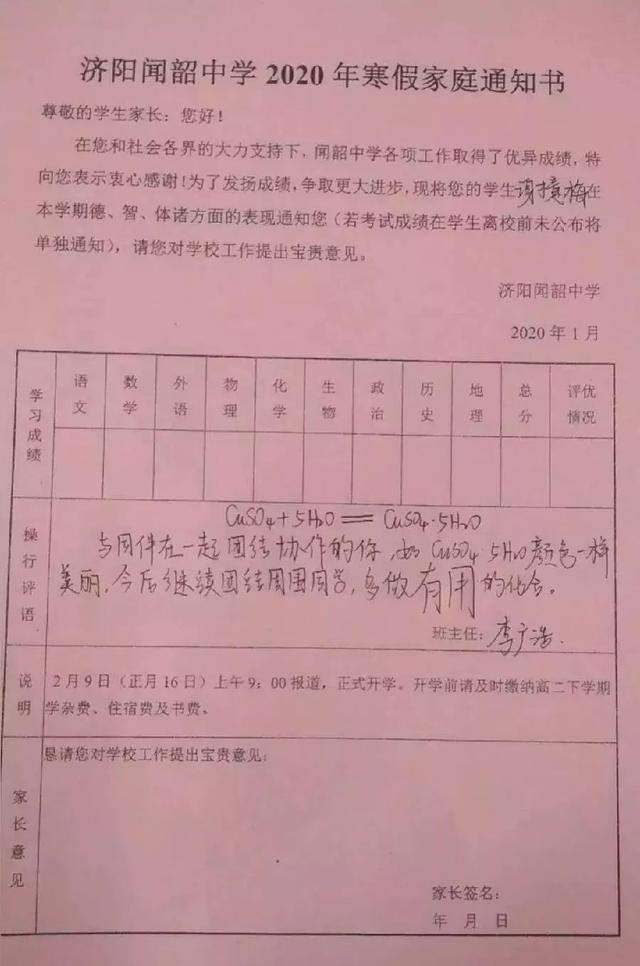 济阳闻韶中学 2020 年寒假家庭通知书
尊敬的学生家长：您好！
在您和社会各界的大力支持下，闻韶中学各项工作取得了优异成绩，特
向您表示衷心感谢！为了发扬成绩，争取更大进步，现将您的学生谢 梅在
本学期德、智、体诸方面的表现通知您（若考试成绩在学生离校前未公布将
单独通知），请您对学校工作提出宝贵意见。
济阳闻韶中学
2020 年 1 月
学习成绩
语文 数学 外语 物理 化学 生物 政治 历史 地理 总分 评优情况
操行评语
CuSO₄+5H₂O══CuSO₄·5H₂O
与同伴在一起团结协作的你，如 CuSO₄ 5H₂O颜色一样
美丽，今后继续团结周围同学，多做有用的化合。
班主任：李广浩.
说明
2 月 9 日（正月 16 日）上午 9：00 报道，正式开学。开学前请及时缴纳高二下学期
学杂费、住宿费及书费。
家长意见
恳请您对学校工作提出宝贵意见：
家长签名：
年 月 日